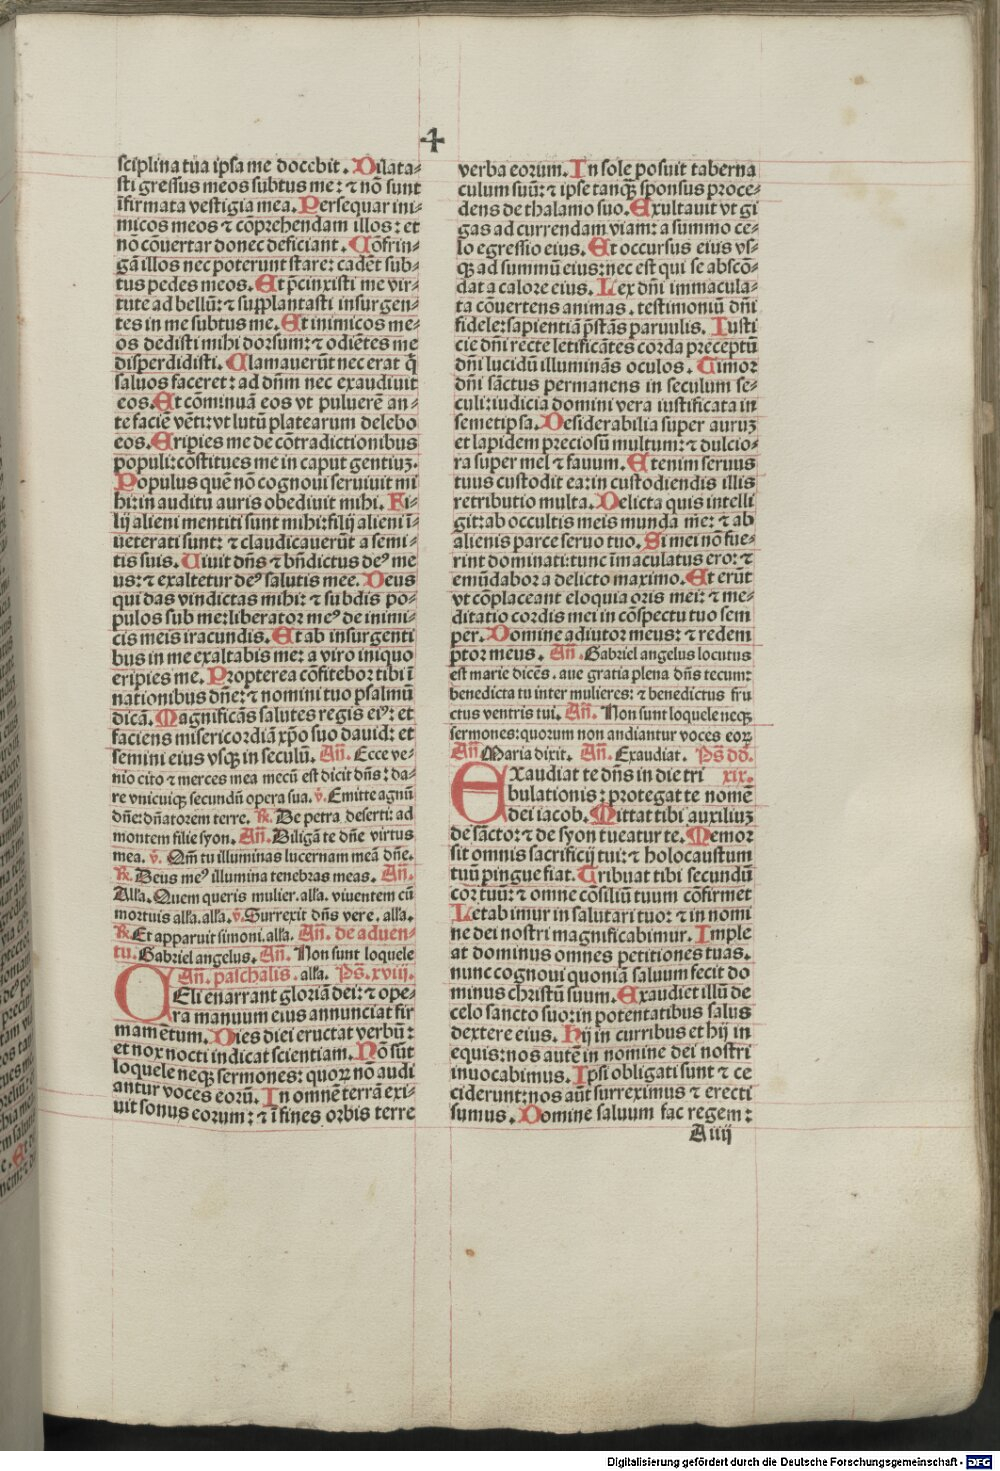 4
sciplina tua ipsa me docebit. Dilata⸗
sti gressus meos subtus me: ⁊ nō sunt
īfirmata vestigia mea. Persequar ini⸗
micos meos ⁊ cōprehendam illos: et
nō cōuertar donec deficiant. Cōfrin⸗
gā illos nec poterunt stare: cadēt sub⸗
tus pedes meos. Et p̄cinxisti me vir⸗
tute ad bellū: ⁊ supplantasti insurgen⸗
tes in me subtus me. Et inimicos me⸗
os dedisti mihi dorsum: ⁊ odiētes me
disperdidisti. Clamauerūt nec erat q̄
saluos faceret: ad dn̄m nec exaudiuit
eos. Et cōminuā eos vt puluerē an⸗
te faciē vēti: vt lutū platearum delebo
eos. Eripies me de cōtradictionibus
populi: cōstitues me in caput gentiuʒ.
Populus quē nō cognoui seruiuit mi
hi: in auditu auris obediuit mihi. Fi⸗
lij alieni mentiti sunt mihi: filij alieni ī⸗
ueterati sunt: ⁊ claudicauerūt a semi⸗
tis suis. Viuit dn̄s ⁊ bn̄dictus deꝰ me
us: ⁊ exaltetur deꝰ salutis mee. Deus
qui das vindictas mihi: ⁊ subdis po⸗
pulos sub me: liberator meꝰ de inimi⸗
cis meis iracundis. Et ab insurgenti
bus in me exaltabis me: a viro iniquo
eripies me. Propterea cōfitebor tibi ī
nationibus dn̄e: ⁊ nomini tuo psalmū
dicā. Magnificās salutes regis eiꝰ: et
faciens misericordiā xp̄o suo dauid: et
semini eius vsq̨ in seculū. Añ. Ecce ve⸗
nio cito ⁊ merces mea mecū est dicit dn̄s: da⸗
re vnicuiq̨ secundū opera sua. ℣. Emitte agnū
dn̄e: dn̄atorem terre. ℟. De petra deserti: ad
montem filie syon. Añ. Diligā te dn̄e virtus
mea. ℣. Qm̄ tu illuminas lucernam meā dn̄e.
℟. Deus meꝰ illumina tenebras meas. Añ.
Alľa. Quem queris mulier. alľa. viuentem cū
mortuis alľa. alľa. ℣. Surrexit dn̄s vere. alľa.
℟. Et apparuit simoni. alľa. Añ. de aduen⸗
tu. Gabriel angelus. Añ. Non sunt loquele
Añ. paschalis. alľa. Ps̄. xviij.
CEli enarrant gloriā dei: ⁊ ope⸗
ra manuum eius annunciat fir
mamētum. Dies diei eructat verbū:
et nox nocti indicat scientiam. Nō sūt
loquele neq̨ sermones: quoꝝ nō audi
antur voces eorū. In omnē terrā exi⸗
uit sonus eorum: ⁊ ī fines orbis terre
verba eorum. In sole posuit taberna
culum suū: ⁊ ipse tanq̄ sponsus proce⸗
dens de thalamo suo. Exultauit vt gi
gas ad currendam viam: a summo ce⸗
lo egressio eius. Et occursus eius vs⸗
q̨ ad summū eius: nec est qui se abscō⸗
dat a calore eius. Lex dn̄i immacula⸗
ta cōuertens animas. testimoniū dn̄i
fidele: sapientiā p̄stās paruulis. Iusti
cie dn̄i recte letificātes corda preceptū
dn̄i lucidū illuminās oculos. Timor
dn̄i sāctus permanens in seculum se⸗
culi: iudicia domini vera iustificata in
semetipsa. Desiderabilia super auruʒ
et lapidem preciosū multum: ⁊ dulcio⸗
ra super mel ⁊ fauum. Etenim seruus
tuus custodit ea: in custodiendis illis
retributio multa. Delicta quis intelli
git: ab occultis meis munda me: ⁊ ab
alienis parce seruo tuo. Si mei nō fue⸗
rint dominati: tunc īmaculatus ero: ⁊
emūdabor a delicto maximo. Et erūt
vt cōplaceant eloquia oris mei: ⁊ me⸗
ditatio cordis mei in cōspectu tuo sem
per. Domine adiutor meus: ⁊ redem
ptor meus. Añ. Gabriel angelus locutus
est marie dicēs. aue gratia plena dn̄s tecum:
benedicta tu inter mulieres: ⁊ benedictus fru
ctus ventris tui. Añ. Non sunt loquele neq̨
sermones: quorum non andiantur voces eoꝝ
Añ Maria dixit. Añ. Exaudiat. Ps̄ dd̄.
EXaudiat te dn̄s in die tri xix.
bulationis: protegat te nomē
dei iacob. Mittat tibi auxiliuʒ
de sāctor ⁊ de syon tueatur te. Memor
sit omnis sacrificij tui: ⁊ holocaustum
tuū pingue fiat. Tribuat tibi secundū
cor tuū: ⁊ omne cōsiliū tuum cōfirmet
Letabimur in salutari tuo: ⁊ in nomi
ne dei nostri magnificabimur. Imple
at dominus omnes petitiones tuas.
nunc cognoui quoniā saluum fecit do
minus christū suum. Exaudiet illū de
celo sancto suo: in potentatibus salus
dextere eius. Hij in curribus et hij in
equis: nos autē in nomine dei nostri
inuocabimus. Ipsi obligati sunt ⁊ ce
ciderunt: nos aūt surreximus ⁊ erecti
sumus. Domine saluum fac regem:
A iiij
Digitalisierung gefördert durch die Deutsche Forschungsgemeinschaft - DFG